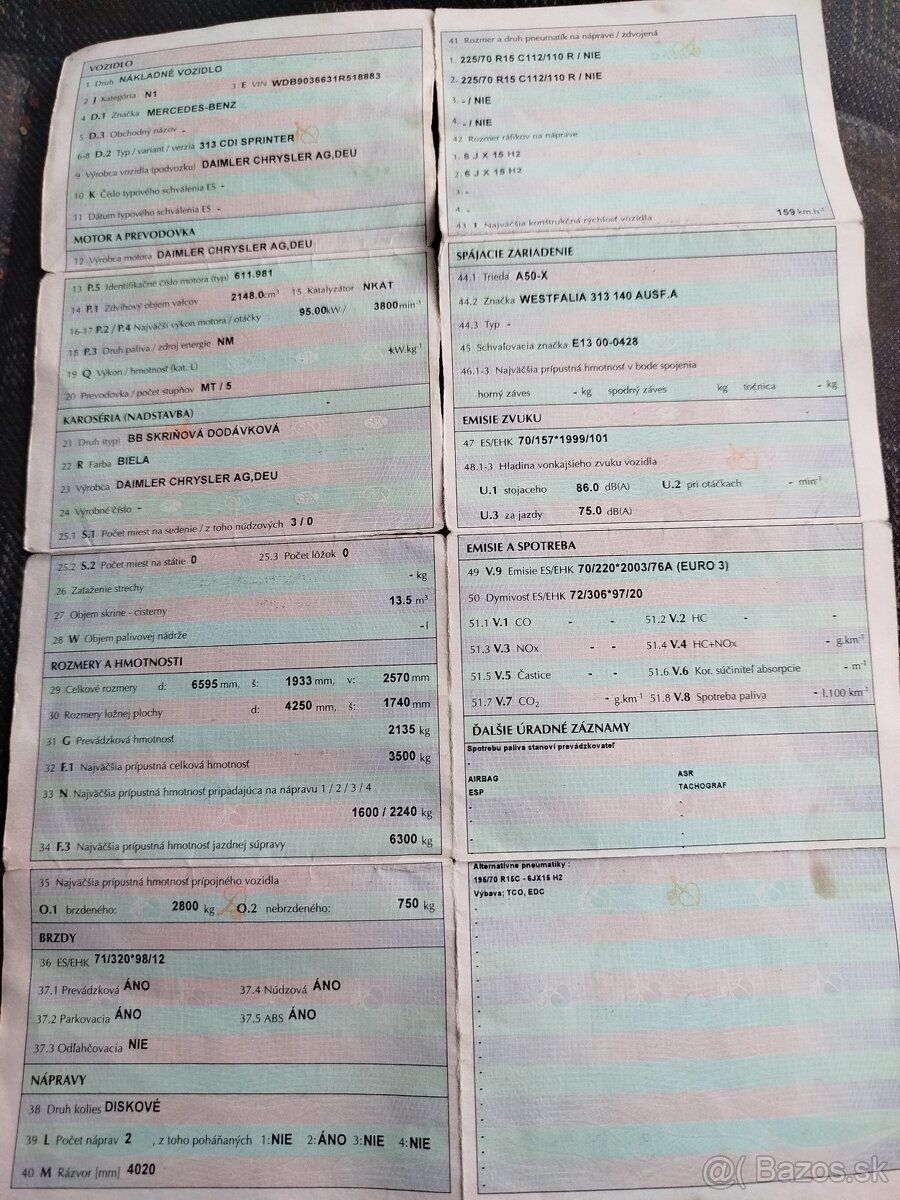 VOZIDLO
1 Druh NÁKLADNÉ VOZIDLO
2 J Kategória N1 3 E VIN WDB9036631R518883
4 D.1 Značka MERCEDES-BENZ
5 D.3 Obchodný názov -
6-8 D.2 Typ / variant / verzia 313 CDI SPRINTER
9 Výrobca vozidla (podvozku) DAIMLER CHRYSLER AG,DEU
10 K Číslo typového schválenia ES -
11 Dátum typového schválenia ES -
MOTOR A PREVODOVKA
12 Výrobca motora DAIMLER CHRYSLER AG,DEU
13 P.5 Identifikačné číslo motora (typ) 611.981
14 P.1 Zdvihový objem valcov 2148.0 cm³ 15 Katalyzátor NKAT
16-17 P.2 / P.4 Najväčší výkon motora / otáčky 95.00 kW / 3800 min⁻¹
18 P.3 Druh paliva / zdroj energie NM
19 Q Výkon / hmotnosť (kat. L) - kW.kg⁻¹
20 Prevodovka / počet stupňov MT / 5
KAROSÉRIA (NADSTAVBA) -
21 Druh (typ) BB SKRIŇOVÁ DODÁVKOVÁ
22 R Farba BIELA
23 Výrobca DAIMLER CHRYSLER AG,DEU
24 Výrobné číslo -
25.1 S.1 Počet miest na sedenie / z toho núdzových 3 / 0
25.2 S.2 Počet miest na státie 0 25.3 Počet lôžok 0
26 Zaťaženie strechy - kg
27 Objem skrine - cisterny 13.5 m³
28 W Objem palivovej nádrže - l
ROZMERY A HMOTNOSTI
29 Celkové rozmery d: 6595 mm, š: 1933 mm, v: 2570 mm
30 Rozmery ložnej plochy d: 4250 mm, š: 1740 mm
31 G Prevádzková hmotnosť 2135 kg
32 F.1 Najväčšia prípustná celková hmotnosť 3500 kg
33 N Najväčšia prípustná hmotnosť pripadajúca na nápravu 1 / 2 / 3 / 4
1600 / 2240 kg
34 F.3 Najväčšia prípustná hmotnosť jazdnej súpravy 6300 kg
35 Najväčšia prípustná hmotnosť prípojného vozidla
O.1 brzdeného: 2800 kg O.2 nebrzdeného: 750 kg
BRZDY
36 ES/EHK 71/320*98/12
37.1 Prevádzková ÁNO 37.4 Núdzová ÁNO
37.2 Parkovacia ÁNO 37.5 ABS ÁNO
37.3 Odľahčovacia NIE
NÁPRAVY
38 Druh kolies DISKOVÉ
39 L Počet náprav 2 , z toho poháňaných 1:NIE 2:ÁNO 3:NIE 4:NIE
40 M Rázvor [mm] 4020
41 Rozmer a druh pneumatík na náprave / zdvojená
1. 225/70 R15 C112/110 R / NIE
2. 225/70 R15 C112/110 R / NIE
3. - / NIE
4. - / NIE
42 Rozmer ráfikov na náprave
1. 6 J X 15 H2
2. 6 J X 15 H2
3. -
4. -
43 T Najväčšia konštrukčná rýchlosť vozidla 159 km.h⁻¹
SPÁJACIE ZARIADENIE
44.1 Trieda A50-X
44.2 Značka WESTFALIA 313 140 AUSF.A
44.3 Typ -
45 Schvaľovacia značka E13 00-0428
46.1-3 Najväčšia prípustná hmotnosť v bode spojenia
horný záves - kg spodný záves kg točnica - kg
EMISIE ZVUKU
47 ES/EHK 70/157*1999/101
48.1-3 Hladina vonkajšieho zvuku vozidla
U.1 stojaceho 86.0 dB(A) U.2 pri otáčkach - min⁻¹
U.3 za jazdy 75.0 dB(A)
EMISIE A SPOTREBA
49 V.9 Emisie ES/EHK 70/220*2003/76A (EURO 3)
50 Dymivosť ES/EHK 72/306*97/20
51.1 V.1 CO - - 51.2 V.2 HC - -
51.3 V.3 NOx - - 51.4 V.4 HC+NOx - g.km⁻¹
51.5 V.5 Častice - - 51.6 V.6 Kor. súčiniteľ absorpcie - m⁻¹
51.7 V.7 CO₂ - g.km⁻¹ 51.8 V.8 Spotreba paliva - l.100 km⁻¹
ĎALŠIE ÚRADNÉ ZÁZNAMY
Spotrebu paliva stanoví prevádzkovateľ
-
AIRBAG ASR
ESP TACHOGRAF
Alternatívne pneumatiky :
195/70 R15C - 6JX15 H2
Výbava: TCO, EDC
@( Bazos.sk